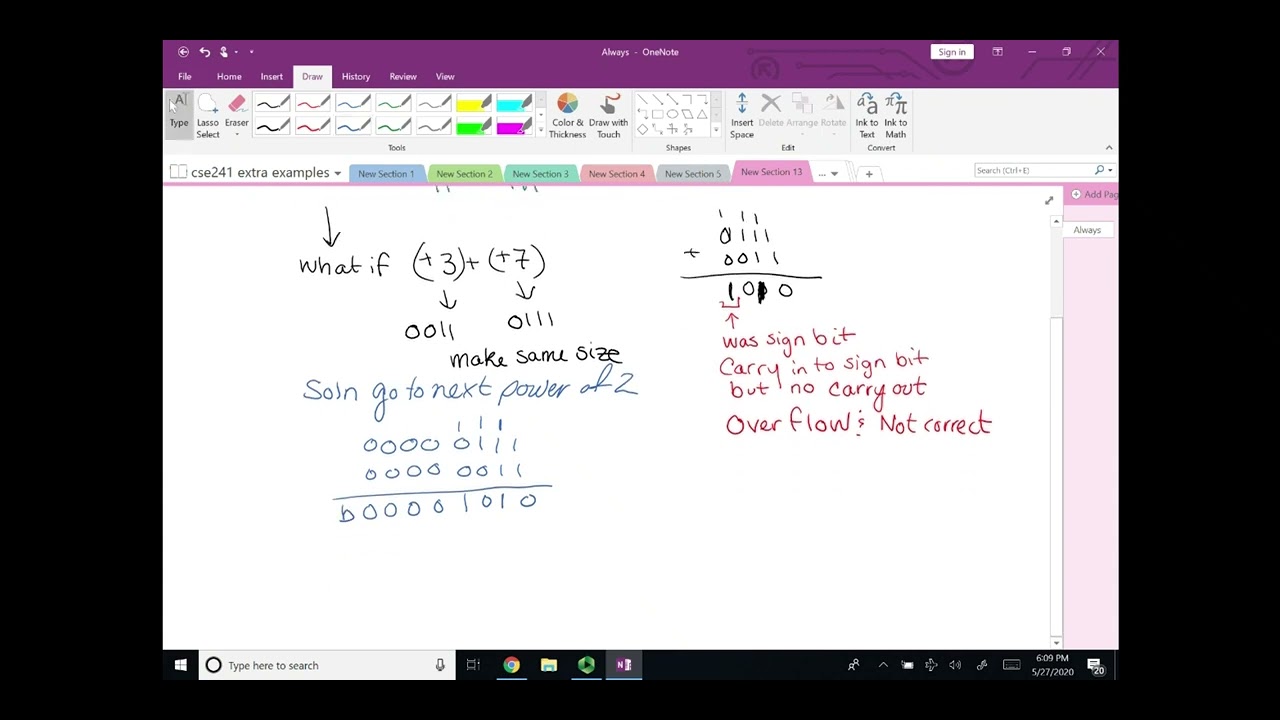 Always - OneNote
Sign in
File Home Insert Draw History Review View
Type
Lasso Select
Eraser
Color & Thickness
Draw with Touch
Insert Space
Delete
Arrange
Rotate
Ink to Text
Ink to Math
Tools
Shapes
Edit
Convert
cse241 extra examples
New Section 1
New Section 2
New Section 3
New Section 4
New Section 5
New Section 13
...
Search (Ctrl+E)
Add Pag
Always
what if (+3)+(+7)
0011 0111
make same size
Soln go to next power of 2
1 1 1
0000 0111
0000 0011
b 0000 1010
1 1 1
0111
+ 0011
1010
was sign bit
Carry in to sign bit
but no carry out
Overflow : Not correct
Type here to search
6:09 PM
5/27/2020
20